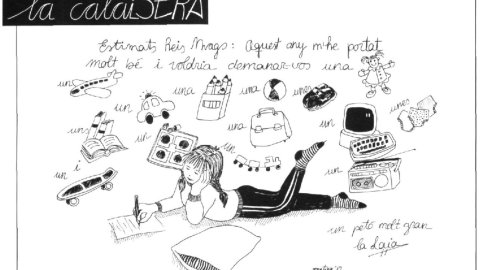 la calaiSERA
Estimats Reis Mags: Aquest any m'he portat
molt bé i voldria demanar-vos una
un un una una unes
uns un una un unes
un i un sin un
un petó molt gran
la Laia